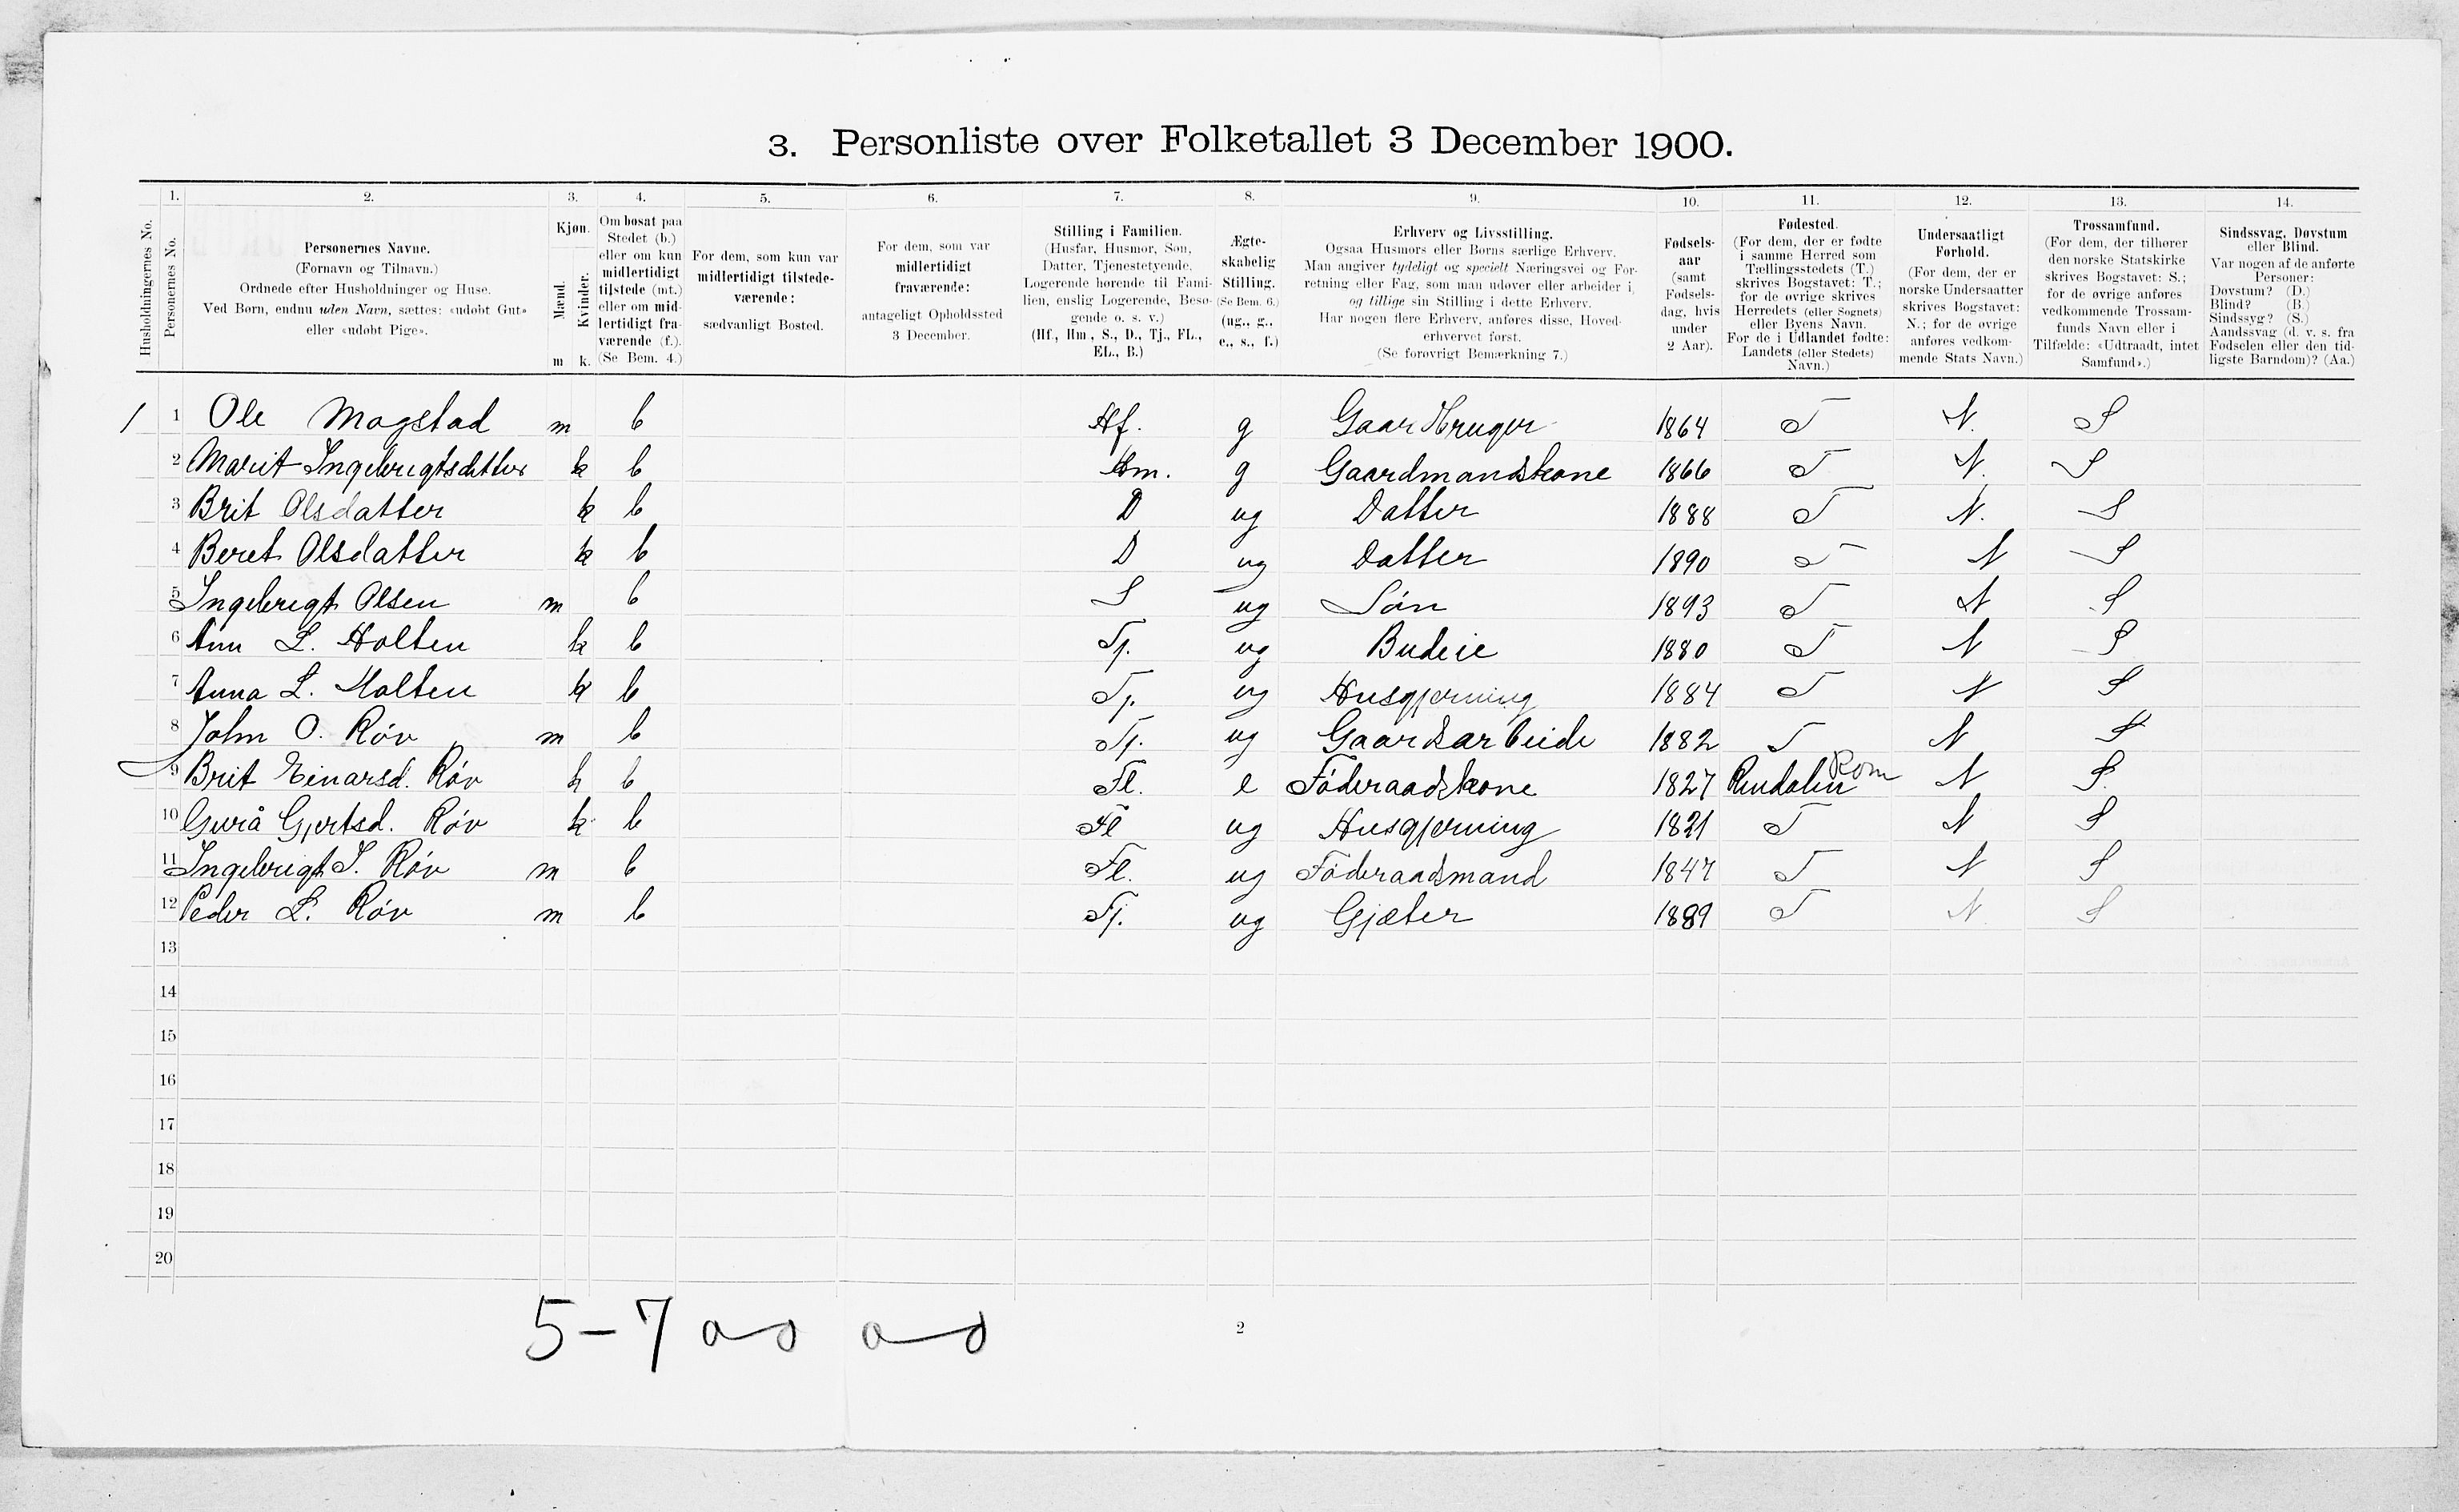 3. Personliste over Folketallet 3 December 1900.
Husholdningernes No.
1.
Personernes No.
2.
Personernes Navne.
(Fornavn og Tilnavn.)
Ordnede efter Husholdninger og Huse.
Ved Børn, endnu uden Navn, sættes: «udøbt Gut»
eller «udøbt Pige».
3.
Kjøn.
Mænd.
Kvinder.
m k.
4.
Om bosat paa
Stedet (b.)
eller om kun
midlertidigt
tilstede (mt.)
eller om mid-
lertidigt fra-
værende (f.).
(Se Bem. 4.)
5.
For dem, som kun var
midlertidigt tilstede-
værende:
sædvanligt Bosted.
6.
For dem, som var
midlertidigt
fraværende:
antageligt Opholdssted
3 December.
7.
Stilling i Familien.
(Husfar, Husmor, Søn,
Datter, Tjenestetyende,
Logerende hørende til Fami-
lien, enslig Logerende, Besø-
gende o. s. v.)
(Hf., Hm., S., D., Tj., FL.,
EL., B.)
8.
Ægte-
skabelig
Stilling.
(Se Bem. 6.)
(ug., g.,
e., s., f.)
9.
Erhverv og Livsstilling.
Ogsaa Husmors eller Børns særlige Erhverv.
Man angiver tydeligt og specielt Næringsvei og For-
retning eller Fag, som man udøver eller arbeider i,
og tillige sin Stilling i dette Erhverv.
Har nogen flere Erhverv, anføres disse, Hoved-
erhvervet først.
(Se forøvrigt Bemærkning 7.)
10.
Fødsels-
aar
(samt
Fødsels-
dag, hvis
under
2 Aar).
11.
Fødested.
(For dem, der er fødte
i samme Herred som
Tællingsstedets (T.)
skrives Bogstavet: T.;
for de øvrige skrives
Herredets (eller Sognets)
eller Byens Navn.
For de i Udlandet fødte:
Landets (eller Stedets)
Navn.)
12.
Undersaatligt
Forhold.
(For dem, der er
norske Undersaatter
skrives Bogstavet:
N.; for de øvrige
anføres vedkom-
mende Stats Navn.)
13.
Trossamfund.
(For dem, der tilhører
den norske Statskirke
skrives Bogstavet: S.;
for de øvrige anføres
vedkommende Trossam-
funds Navn eller i
Tilfælde: «Udtraadt, intet
Samfund».)
14.
Sindssvag, Døvstum
eller Blind.
Var nogen af de anførte
Personer:
Døvstum? (D.)
Blind? (B.)
Sindssyg? (S.)
Aandssvag (d. v. s. fra
Fødselen eller den tid-
ligste Barndom)? (Aa.)
1 1 Ole Mogstad m b Hf. g Gaardbruger 1864 T N. S
2 Marit Ingebrigtsdatter k b Hm. g Gaardmandskone 1866 T N. S
3 Brit Olsdatter k b D ug Datter 1888 T N. S
4 Beret Olsdatter k b D ug Datter 1890 T N S
5 Ingebrigt Olsen m b S ug Søn 1893 T N S
6 Ann L. Holten k b Tj. ug Budeie 1880 T N S
7 Anna L. Holten k b Tj. ug Husgjerning 1884 T N S
8 John O. Røv m b Tj. ug Gaardsarbeide 1882 T N S
9 Brit Einarsd. Røv k b Fl. e Føderaadskone 1827 Rindalen Rom N S.
10 Gurå Gjertsd. Røv k b Fl ug Husgjerning 1821 T N S
11 Ingebrigt I. Røv m b Fl. ug Føderaadsmand 1847 T N S
12 Peder L. Røv m b Tj. ug Gjæter 1889 T N. S
13
14
15
16
17
18
19
20
5-7
2